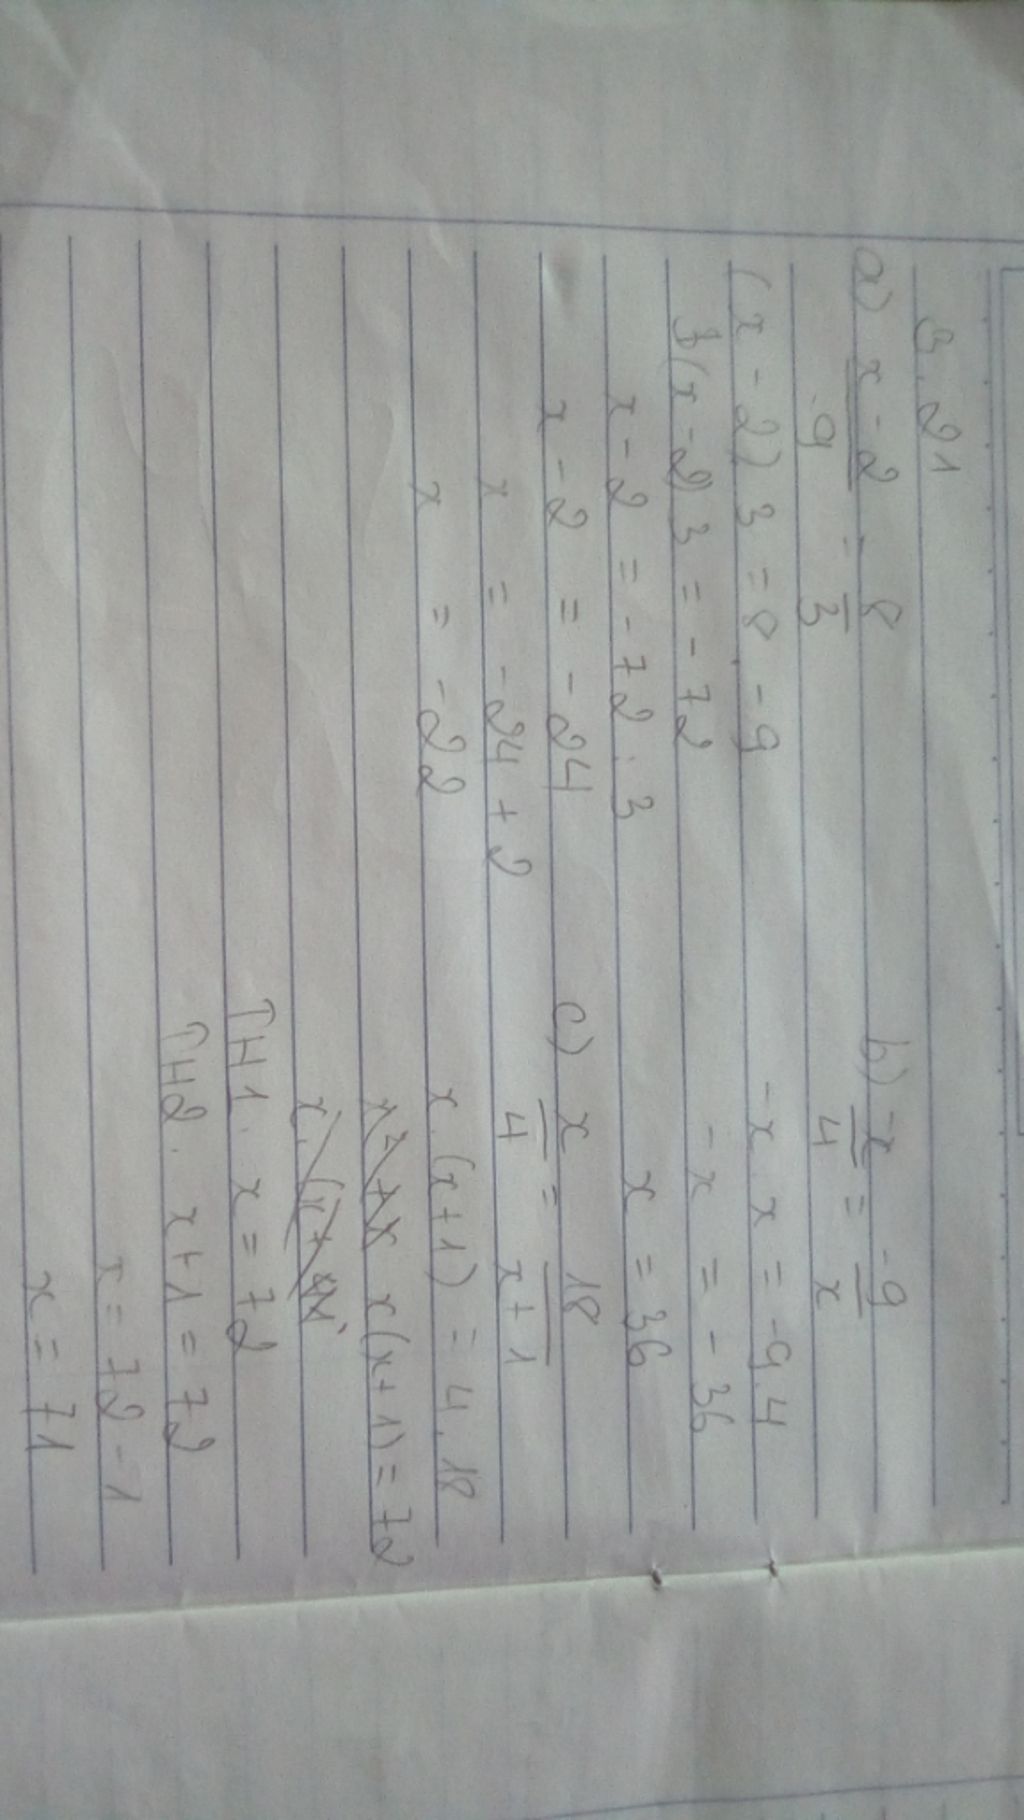 3.21
a) x-2 / -9 = 8 / 3
(x-2) 3 = 8 . -9
(x-2) 3 = -72
x-2 = -72 : 3
x - 2 = -24
x = -24 + 2
x = -22
b) -x / 4 = -9 / x
-x x = -9.4
-x = -36
x = 36
c) x / 4 = 18 / x+1
x.(x+1) = 4.18
x(x+1) = 72
TH1. x = 72
TH2. x+1 = 72
x = 72-1
x = 71